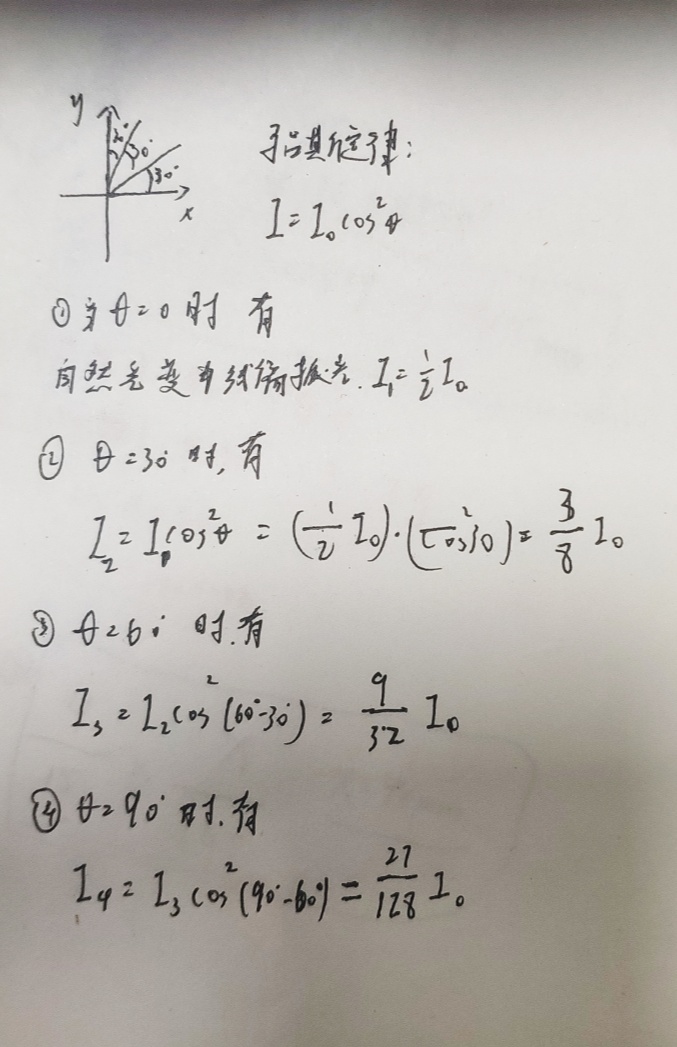 y
30°
30°
30°
x
马吕其定律:
I=I₀cos²θ
① 当θ=0时 有
自然光变为线偏振光. I₁=½I₀
② θ=30°时,有
I₂=I₁cos²θ=(1/2 I₀)·(cos²30)=3/8 I₀
③ θ=60°时.有
I₃=I₂cos²(60°-30°)=9/32 I₀
④ θ=90°时.有
I₄=I₃cos²(90°-60°)=27/128 I₀